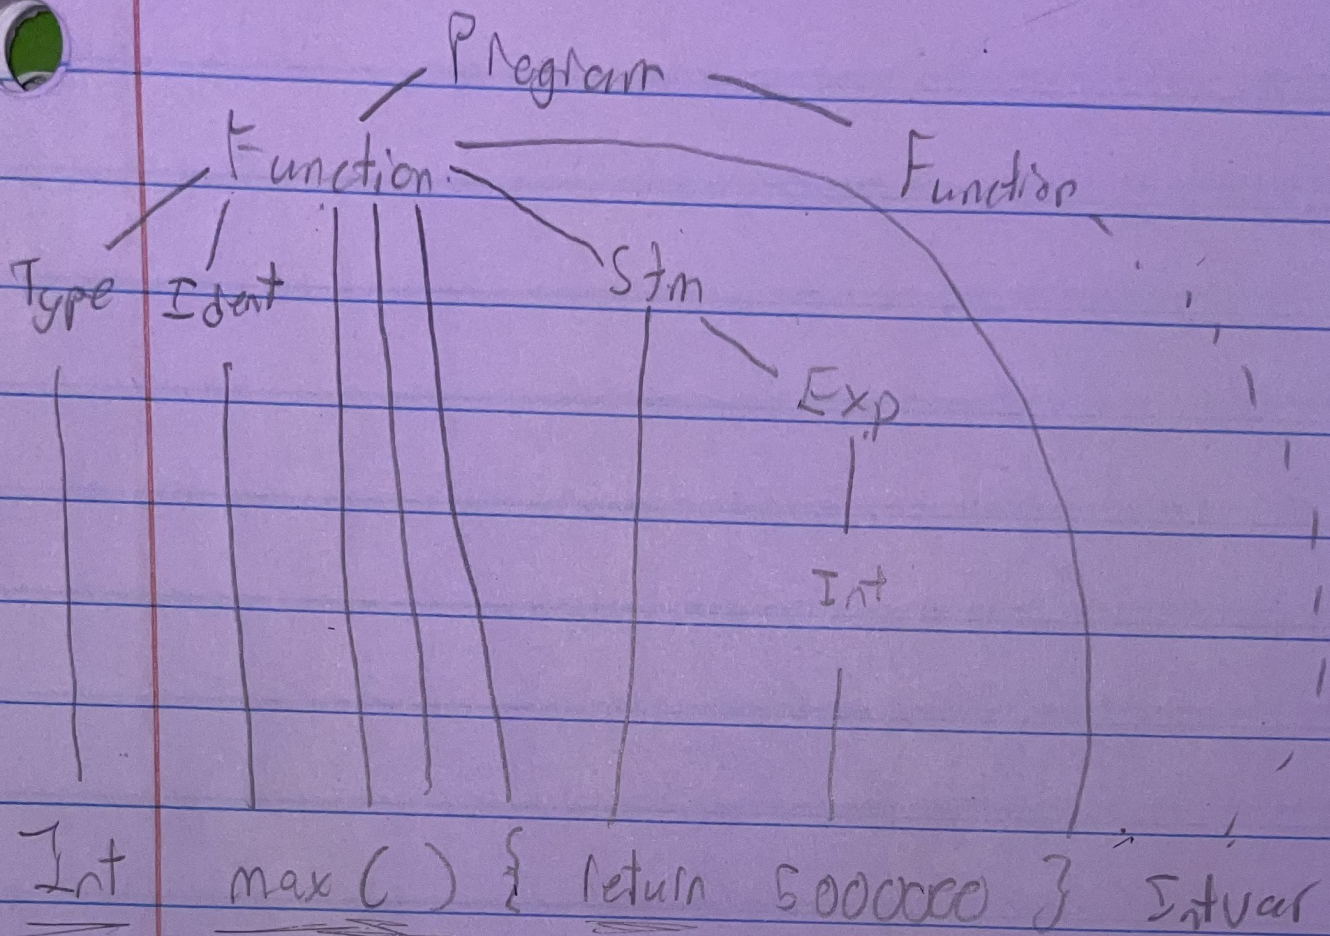 Program
Function Function
Type Ident Stm
Exp
Int
Int max ( ) { return 5000000 } Intvar